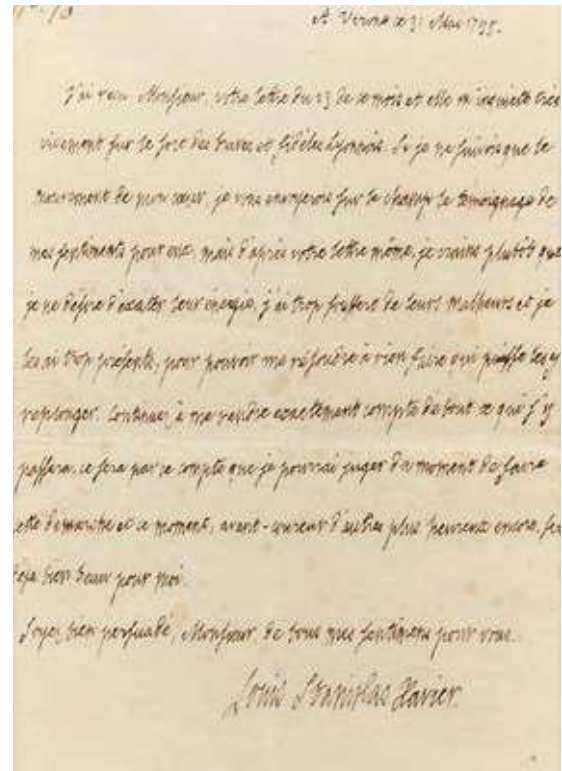 A Verone ce 31 Mai 1795.
J'ai reçu Monsieur, votre lettre du 23 de ce mois et elle m'inquiete très
vivement sur le sort des braves et fidéles Lyonnois. Si je ne suivois que le
mouvement de mon cœur, je vous envoyerois sur le champ le temoignage de
mes sentiments pour eux, mais d'après votre lettre même, je crains plutôt que
je ne desire d'exalter leur énergie, j'ai trop souffert de leurs malheurs et je
les ai trop présents, pour pouvoir me résoudre à rien faire qui puisse les y
replonger. Continuez à me rendre exactement compte de tout ce qui s'y
passera, ce sera par ce compte que je pourrai juger du moment de faire
cette demarche et ce moment, avant-coureur d'autres plus heureux encore, sera
déja bien beau pour moi.
Soyez bien persuadé, Monsieur, de tous mes sentimens pour vous.
Louis Stanislas Xavier.